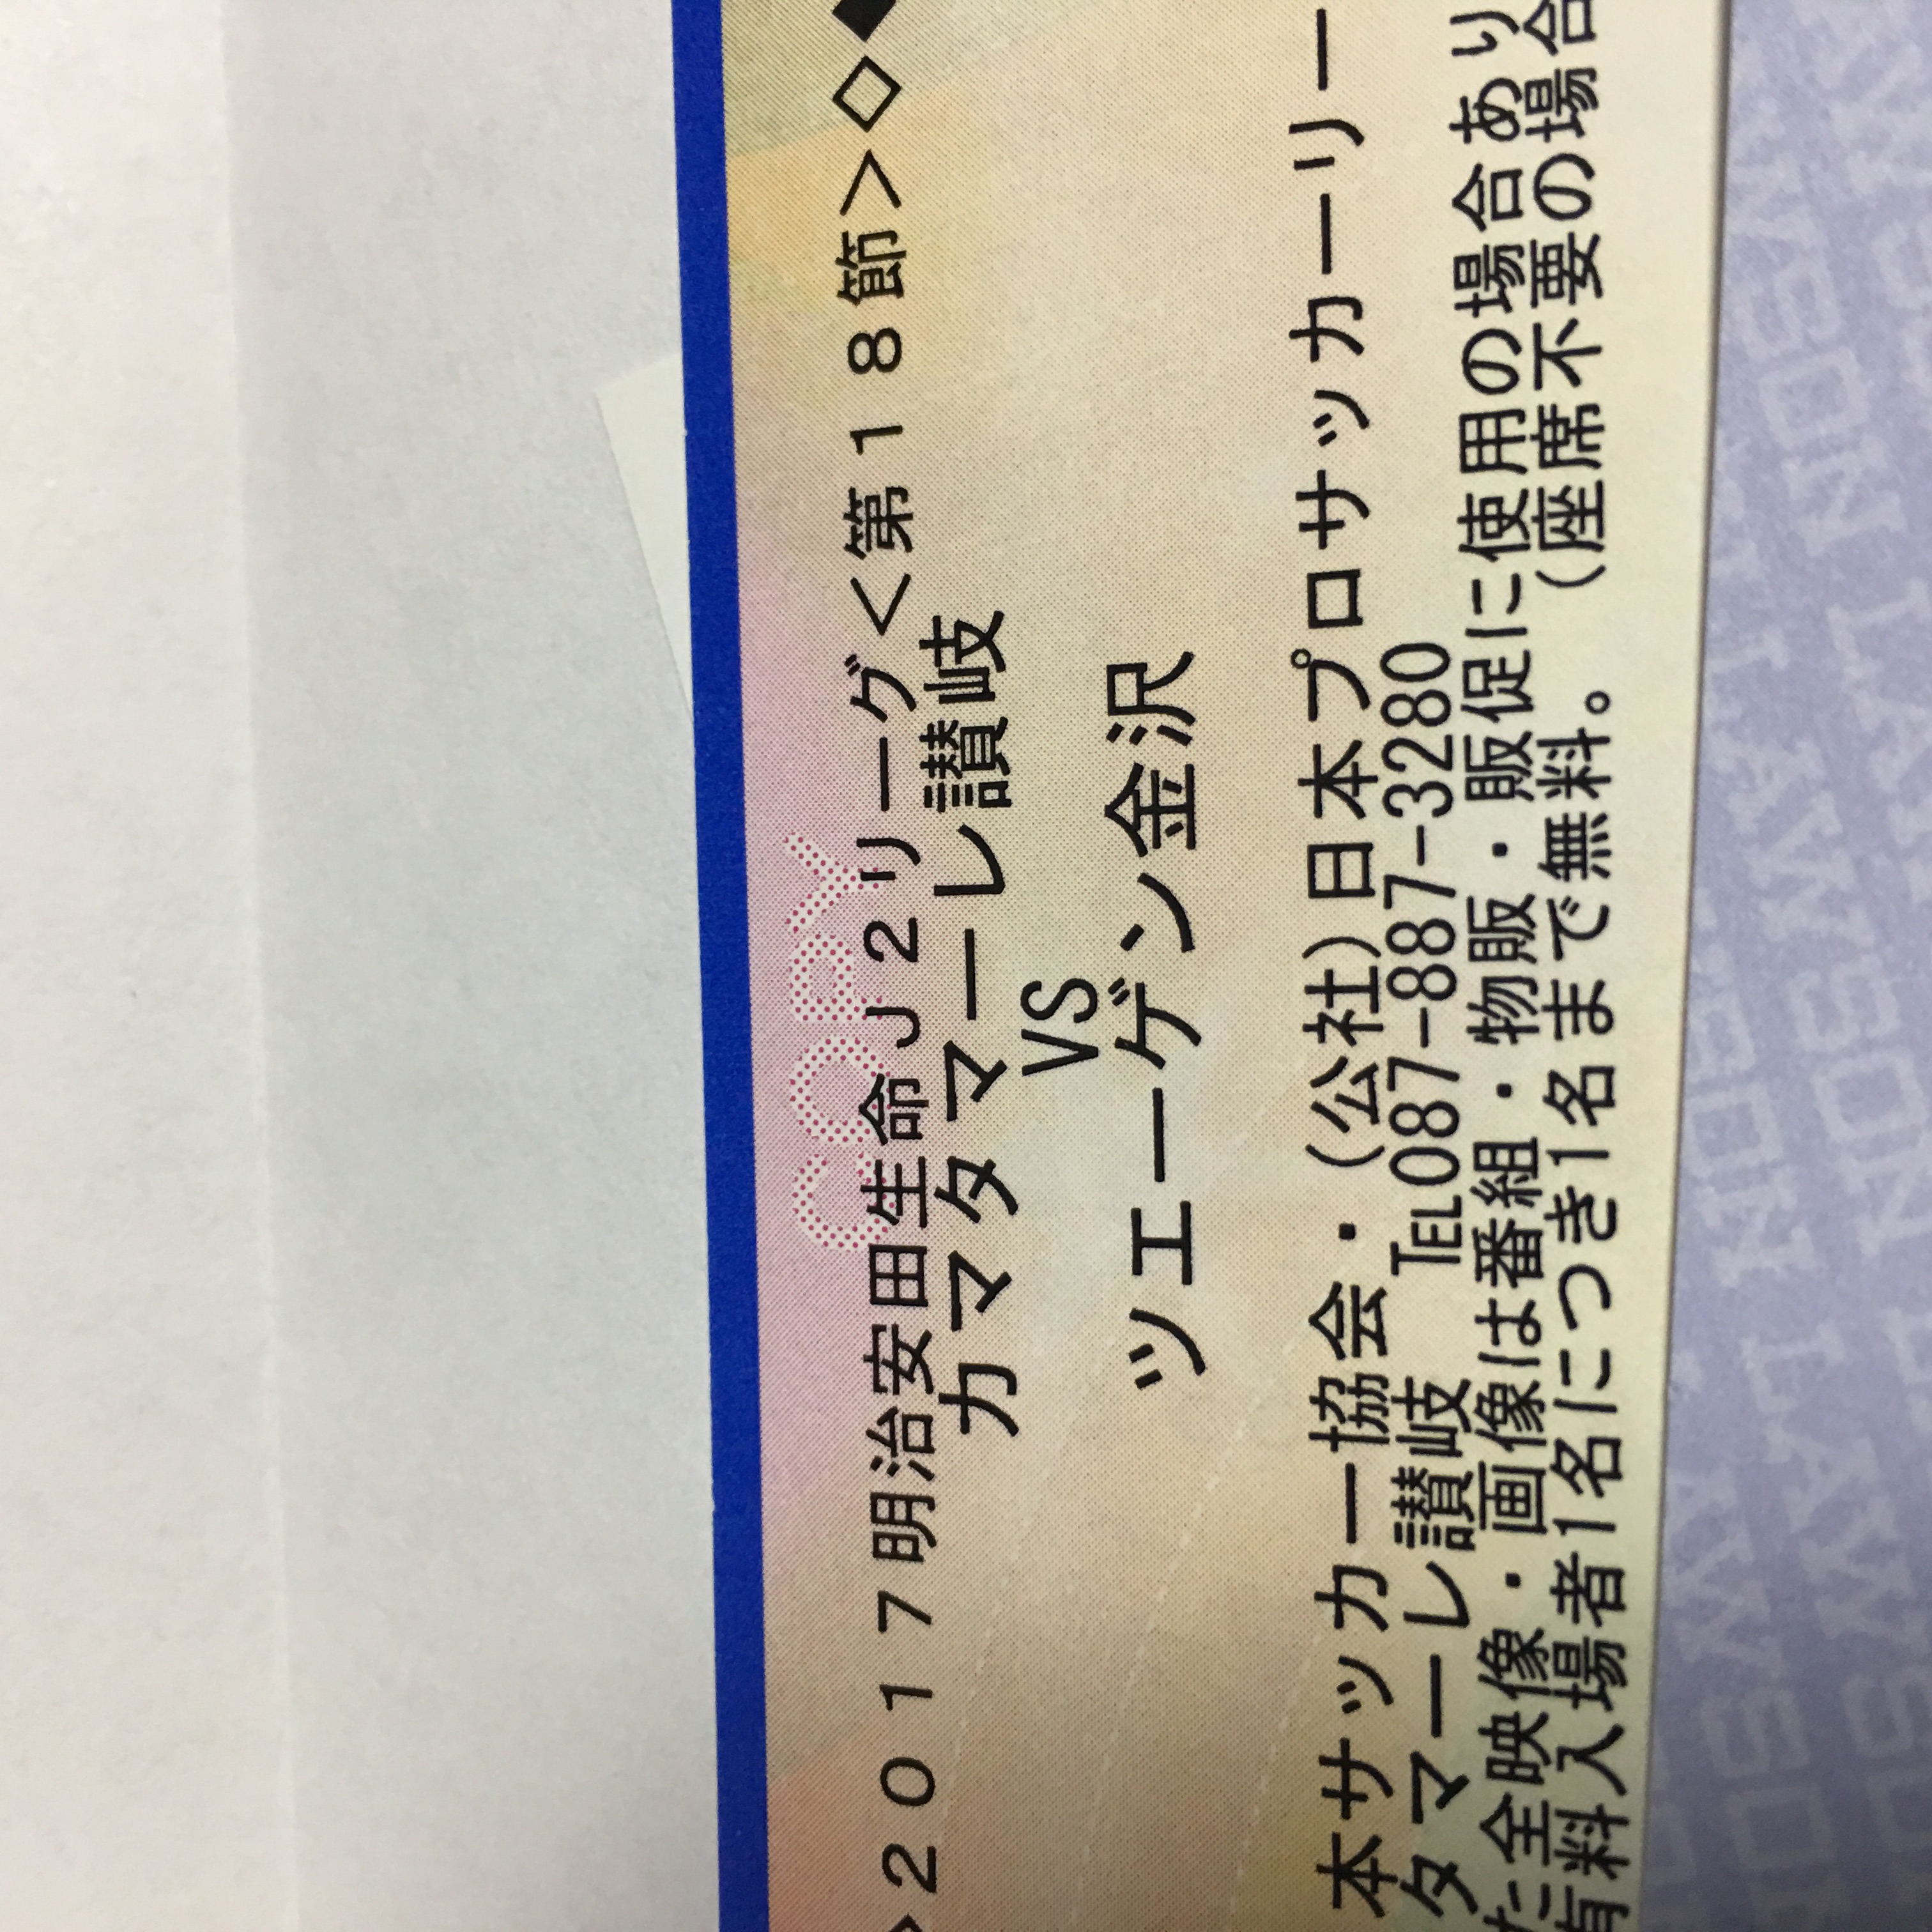 ２０１７明治安田生命Ｊ２リーグ＜第１８節＞◇◆
カマタマーレ讃岐
VS
ツエーゲン金沢
本サッカー協会・（公社）日本プロサッカーリー
タマーレ讃岐　TEL087-887-3280
た全映像・画像は番組・物販・販促に使用の場合あり
有料入場者1名につき1名まで無料。（座席不要の場合
COPY
LAWSON